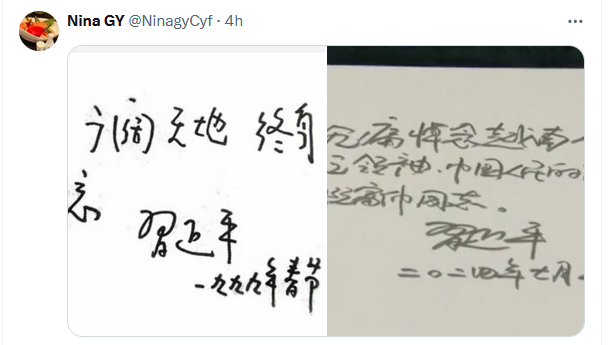 Nina GY @NinagyCyf · 4h
广阔天地 终身
忘
習近平
一九九九年春节
沉痛悼念越南
领袖、中国人民的
富仲同志。
習近平
二〇二四年七月